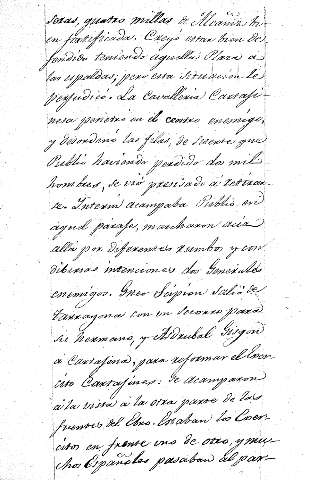 sotas, quatro millas de Alcaniz bi-
en fortificada. Creyó estar bien de-
fendido teniendo aquella Plaza a
las espaldas; pero esta situacion le
perjudicó. La cavalleria Cartagi-
nesa penetró en el centro enemigo,
y desordenó las filas, de suerte que
Publio haviendo perdido dos mil
hombres, se vió precisado á retirar-
se. Interin acampaba Publio en
aquel parage, marcharon acia
alla por diferentes rumbos y con
diversas intenciones dos Generales
enemigos. Gneo Scipion salió de
Tarragona con un socorro para
su hermano, y Asdrubal Gisgon
a Cartagena, para reformar el Exer-
cito Cartagines: se acamparon
á la vista á la otra parte de las
fuentes del Ebro. Estaban los Exer-
citos en frente uno de otro, y mu-
chos Españoles pasaban al par-